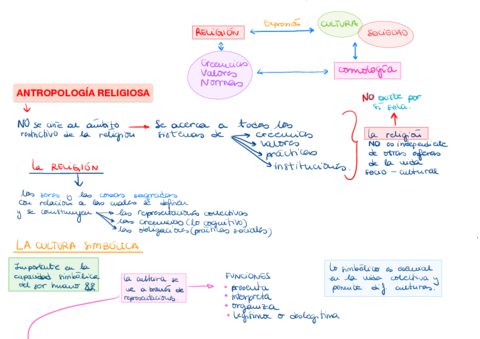 RELIGIÓN
Expresión
CULTURA
SOCIEDAD
Creencias
Valores
Normas
cosmología
ANTROPOLOGÍA RELIGIOSA
NO se ciñe al ámbito
restrictivo de la religión
Se acerca a todos los
sistemas de
creencias
valores
prácticas
instituciones.
NO existe por
sí sola.
la religión
NO es independiente
de otras esferas
de la vida
socio-cultural
La RELIGIÓN
los seres y las cosas sagradas
con relación a las cuales se definen
y se construyen
las representaciones colectivas
las creencias (lo cognitivo)
las obligaciones (prácticas sociales)
LA CULTURA SIMBÓLICA
Importante en la
capacidad simbólica
del ser humano
La cultura se
ve a través de
representaciones.
FUNCIONES
• presenta
• interpreta
• organiza
• legitima o deslegitima
Lo simbólico es esencial
en la vida colectiva y
permite dif culturas.